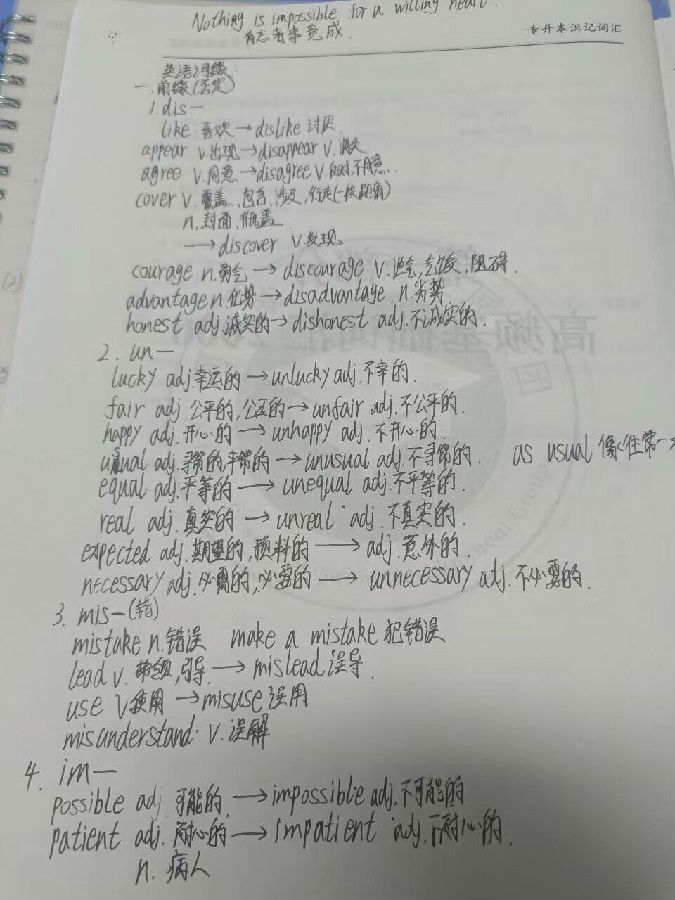 Nothing is impossible for a willing heart.
有志者事竟成.
专升本识记词汇
英语词缀
一.前缀(否定)
1. dis—
like 喜欢→dislike 讨厌
appear v.出现→disappear v.消失
agree v.同意→disagree v.反对,不同意.
cover v.覆盖,包含,涉及,行走(一段距离)
n.封面,瓶盖
→discover v.发现
courage n.勇气→discourage v.泄气,气馁,阻碍.
advantage n.优势→disadvantage n.劣势
honest adj.诚实的→dishonest adj.不诚实的.
2. un—
lucky adj.幸运的→unlucky adj.不幸的.
fair adj.公平的,公正的→unfair adj.不公平的.
happy adj.开心的→unhappy adj.不开心的.
usual adj.寻常的,平常的→unusual adj.不寻常的. as usual 像往常一
equal adj.平等的→unequal adj.不平等的.
real adj.真实的→unreal adj.不真实的.
expected adj.期望的,预料的→adj.意外的.
necessary adj.必需的,必要的→unnecessary adj.不必要的.
3. mis—(错)
mistake n.错误 make a mistake 犯错误
lead v.带领,引导.→mislead 误导.
use v.使用→misuse 误用
misunderstand v.误解
4. im—
possible adj 可能的.→impossible adj.不可能的
patient adj.耐心的→impatient adj.不耐心的.
n.病人